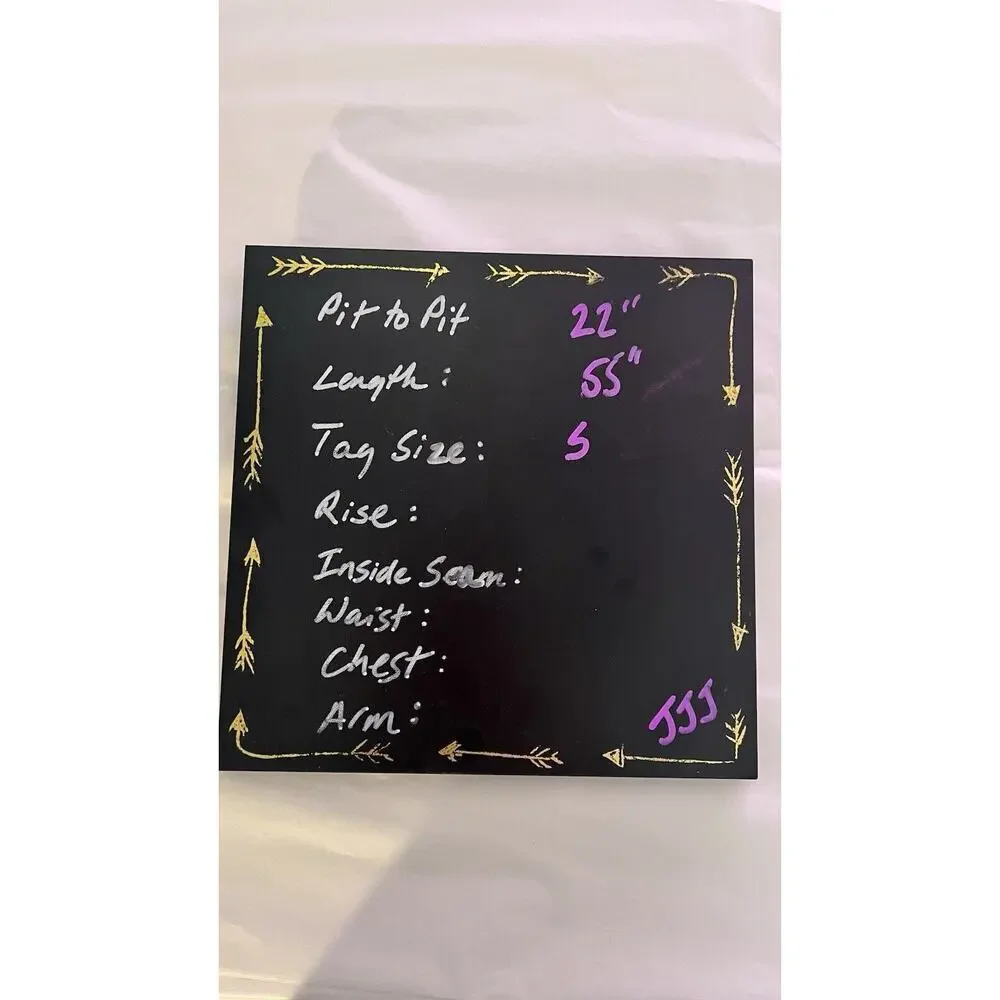 Pit to Pit 22"
Length: 55"
Tag Size: S
Rise:
Inside Seam:
Waist:
Chest:
Arm:
JJJ